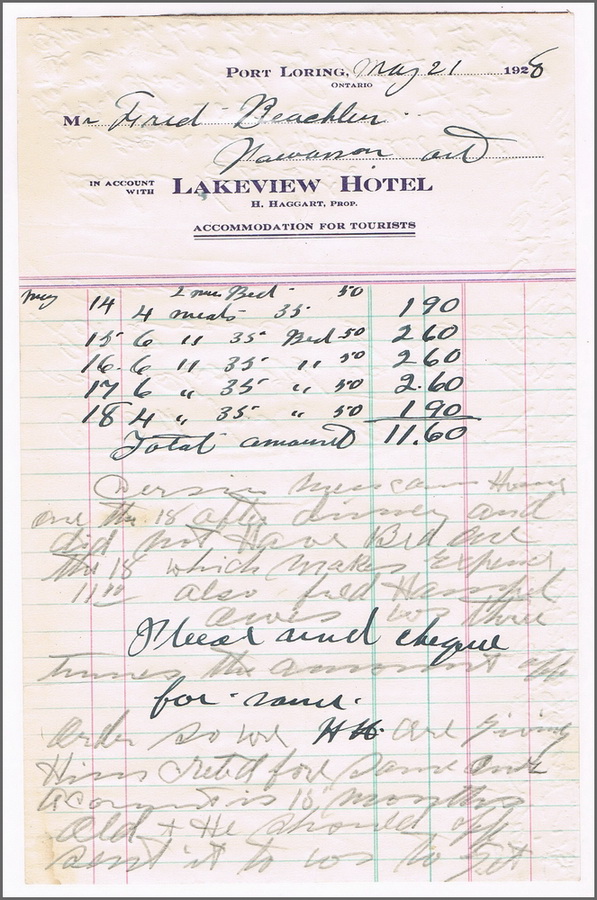 PORT LORING, May 21 1928
ONTARIO
Mr Fred Beachler
ont
IN ACCOUNT WITH LAKEVIEW HOTEL
H. HAGGART, PROP.
ACCOMMODATION FOR TOURISTS
2 men Bed - 50
May 14 4 meals 35 1 90
15 6 " 35 Bed 50 2 60
16 6 " 35 " 50 2 60
17 6 " 35 " 50 2.60
18 4 " 35 " 50 1 90
Total amount 11.60
men came Home
one the 18 after dinner and
did not Have Bed one
the 18 which makes Expence
11.10 also fred
owes wos three
Pleas send cheque
times the amount off
for same.
order so we HH. are giving
Him for same one
acount is 18 months
old + He should off
sent it to wos to get